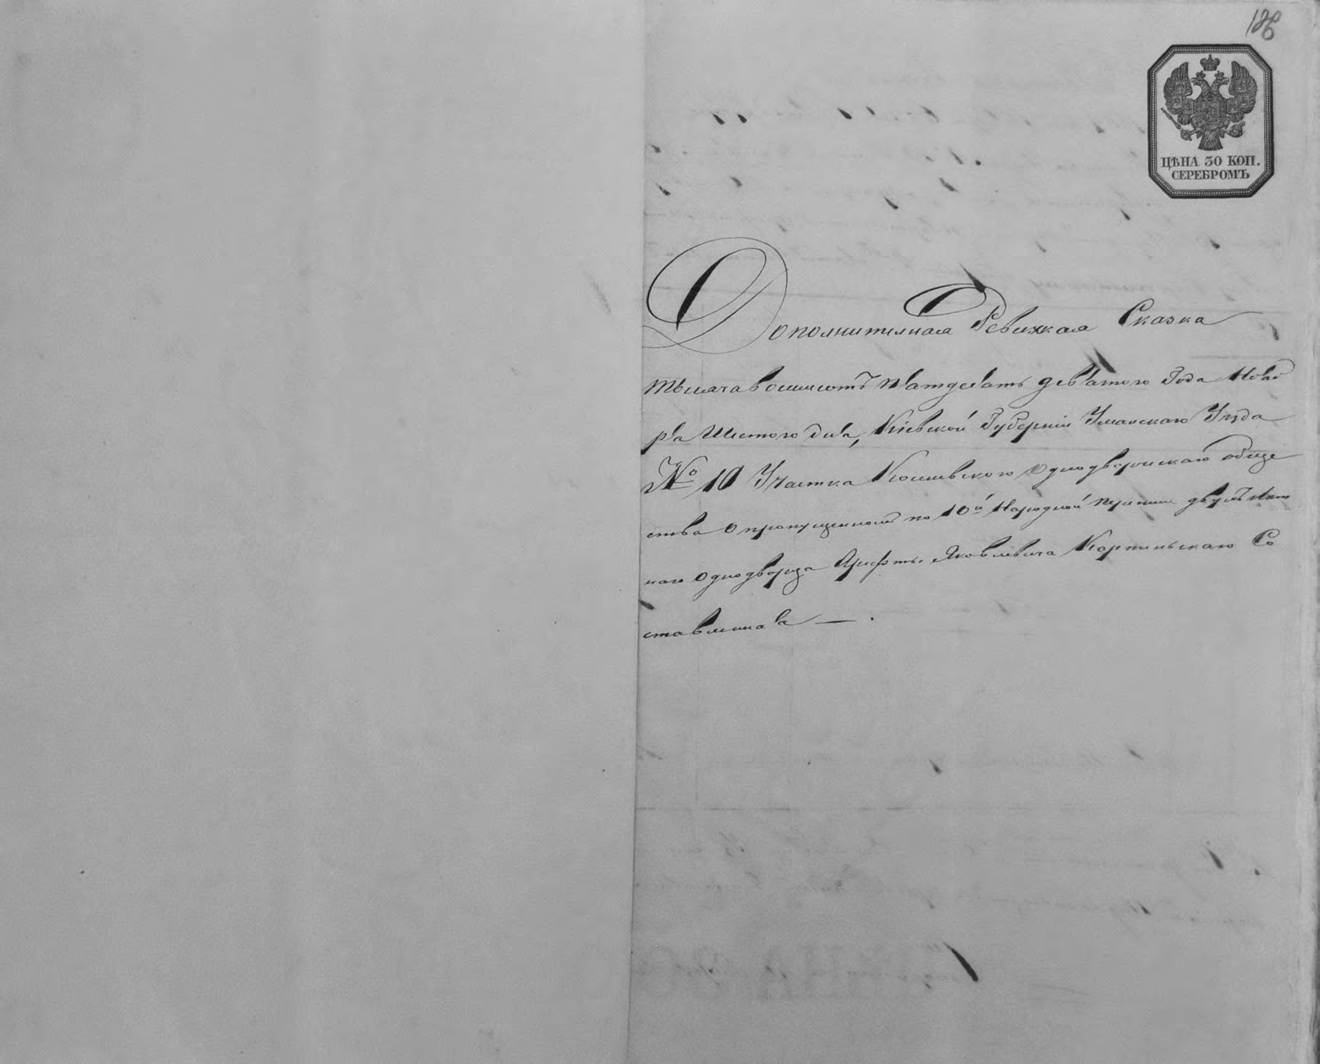 126
ЦѢНА 30 КОП.
СЕРЕБРОМЪ
Дополнителная Ревижкая Сказка
тысяча восимсотъ пятдесятъ девятого Года Нояб
ря Шестого дня, Кіевской Губерніи Уманскаго Уѣзда
№ 10 Участка Однодворческаго обще
ства О пропущенномъ по 10й Народной переписи
наго однодворца Яковлевича Корчинскаго Со
ставленная — .